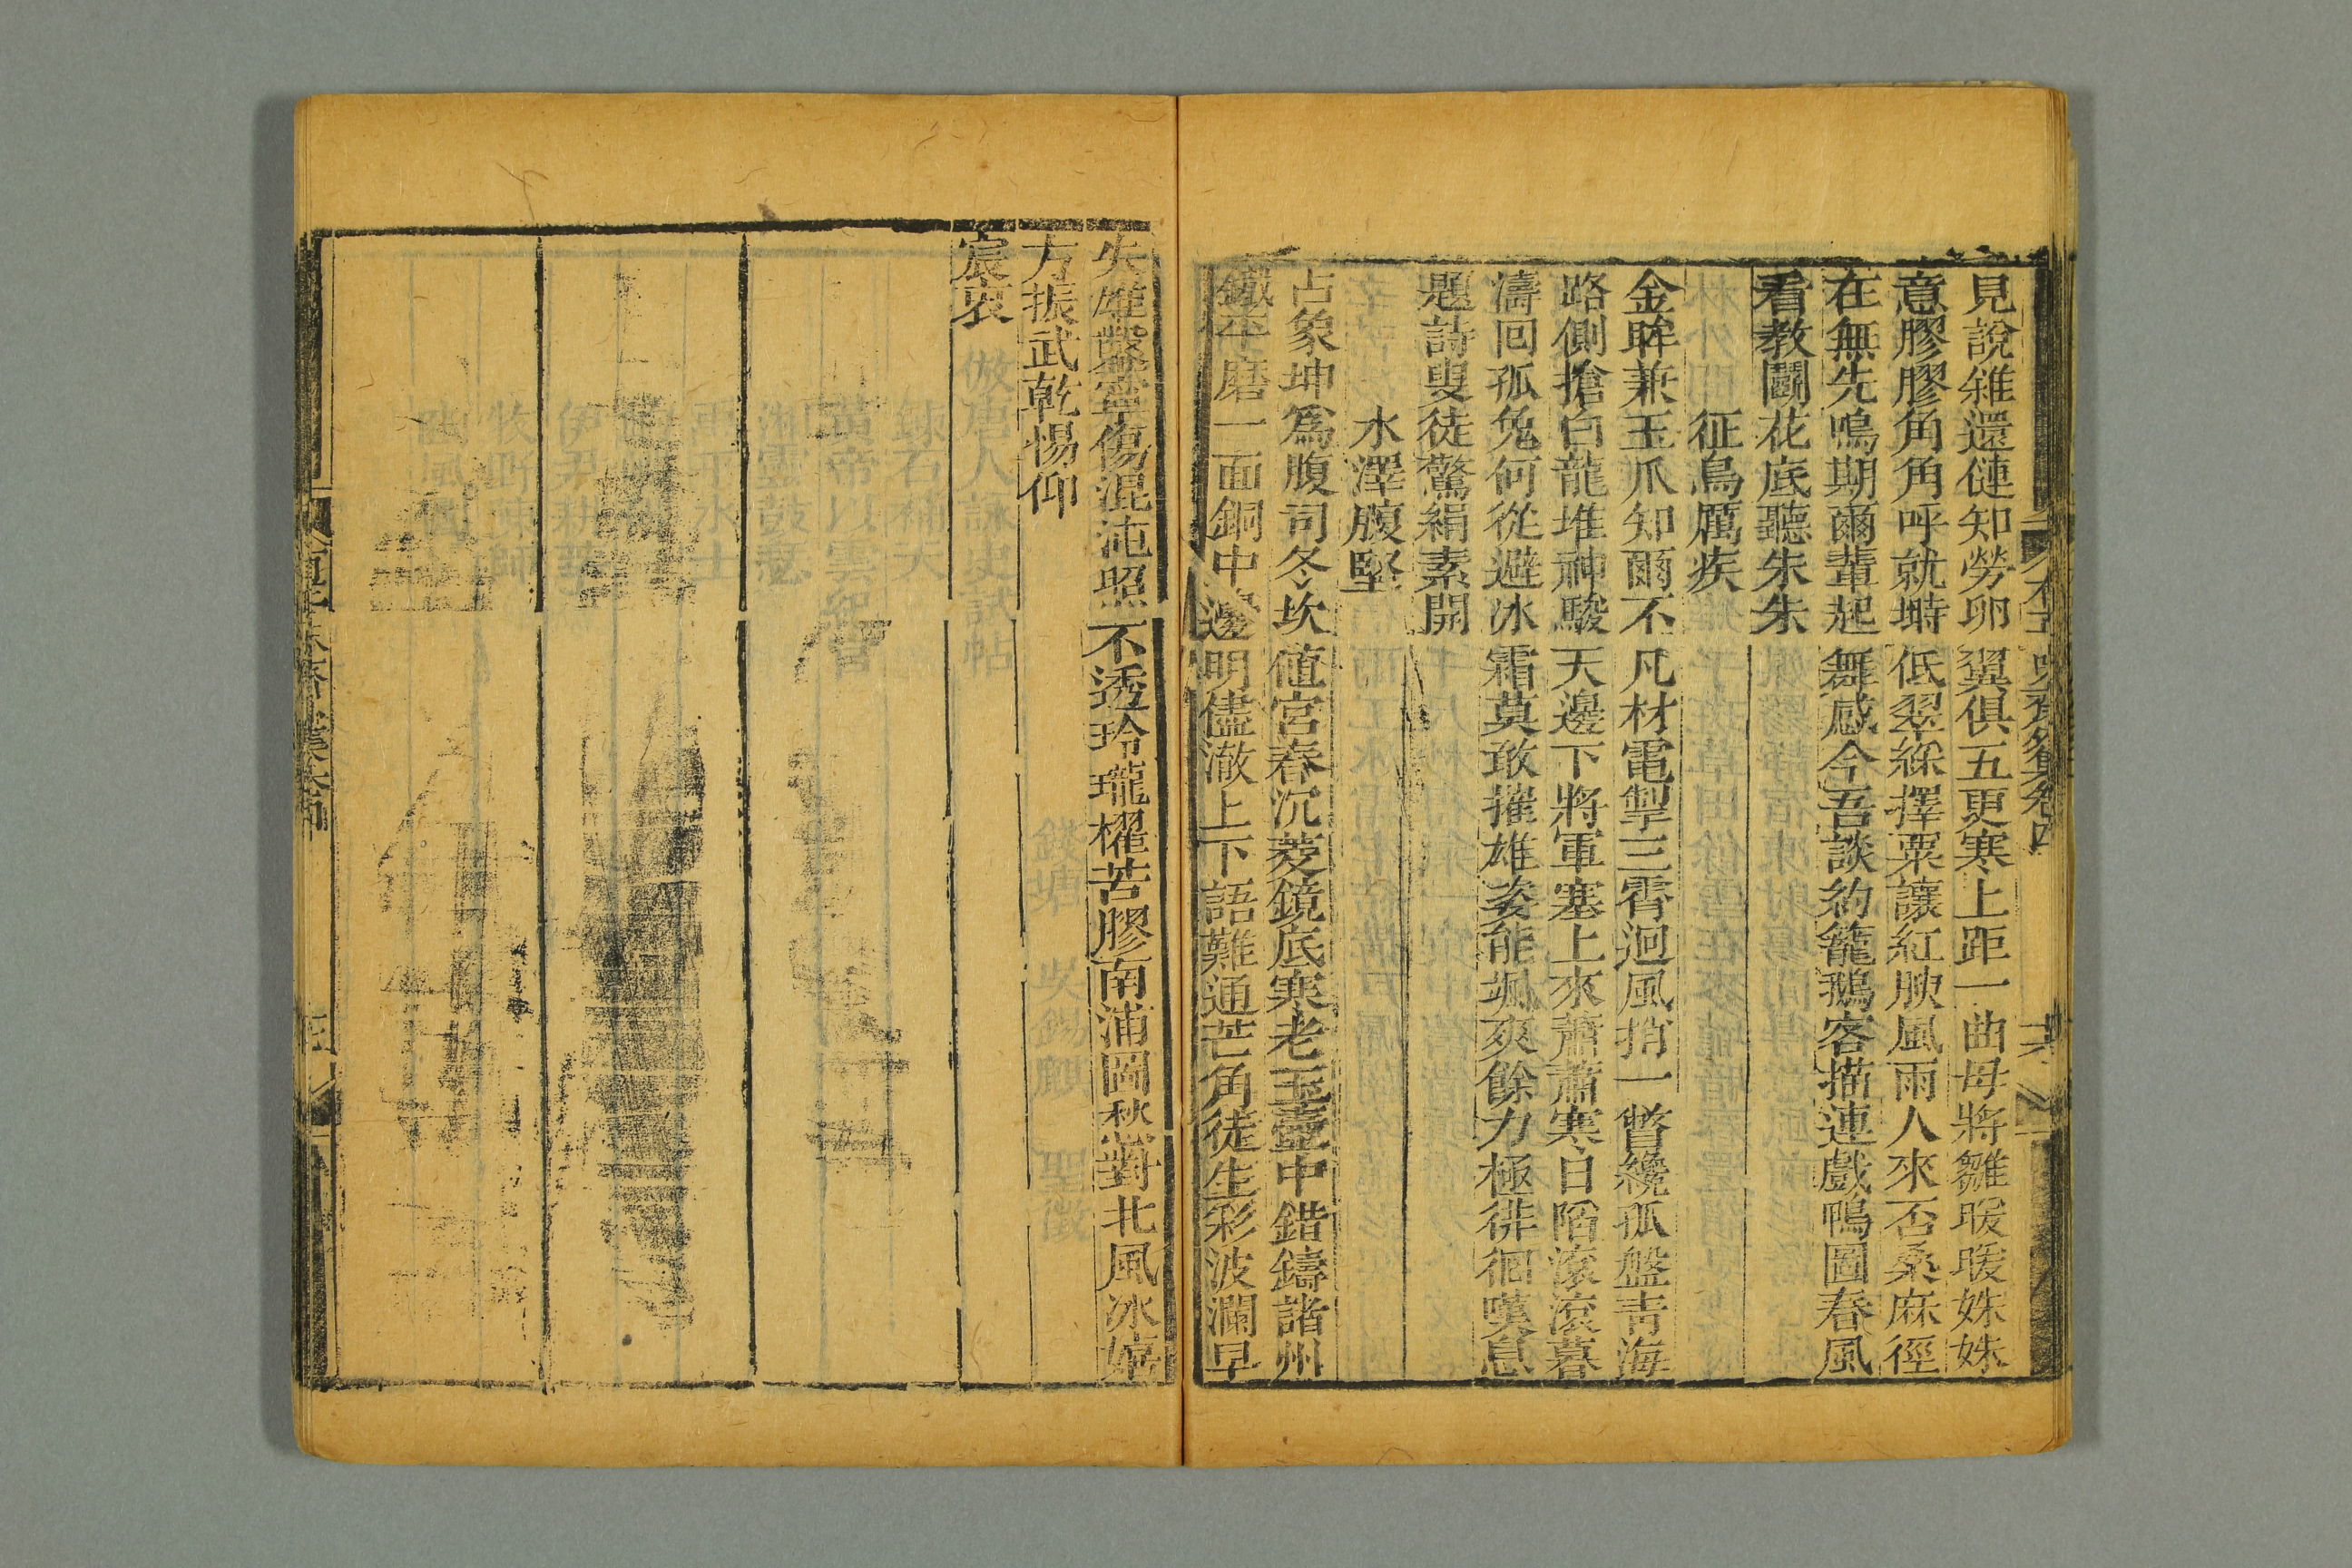 見說雞還健知勞卵翼俱五更寒上距一曲母將雛暖暖姝姝
意膠膠角角呼就塒低翠綵擇粟讓紅腴風雨人來否桑麻徑
在無先鳴期爾輩起舞感今吾談約籠鵝客描連戲鴨圖春風
看教鬭花底聽朱朱
征鳥厲疾
金眸兼玉爪知爾不凡材電掣三霄迥風捎一瞥纔孤盤靑海
路側搶白龍堆神駿天邊下將軍塞上來蕭蕭寒日滔滚滚暮
濤回狐兔何從避冰霜莫敢摧雄姿能颯爽餘力極徘徊嘆息
題詩叟徒驚絹素開
水澤腹堅
占象坤爲腹司冬坎值宮春沉菱鏡底寒老玉壺中錯鑄諸州
鐵平磨一面銅中邊明儘澈上下語難通芒角徒生彩波瀾早
失雄鑿寧傷混沌照不透玲瓏櫂苦膠南浦岡秋對北風冰嬉
方振武乾惕仰
宸衷
卷四